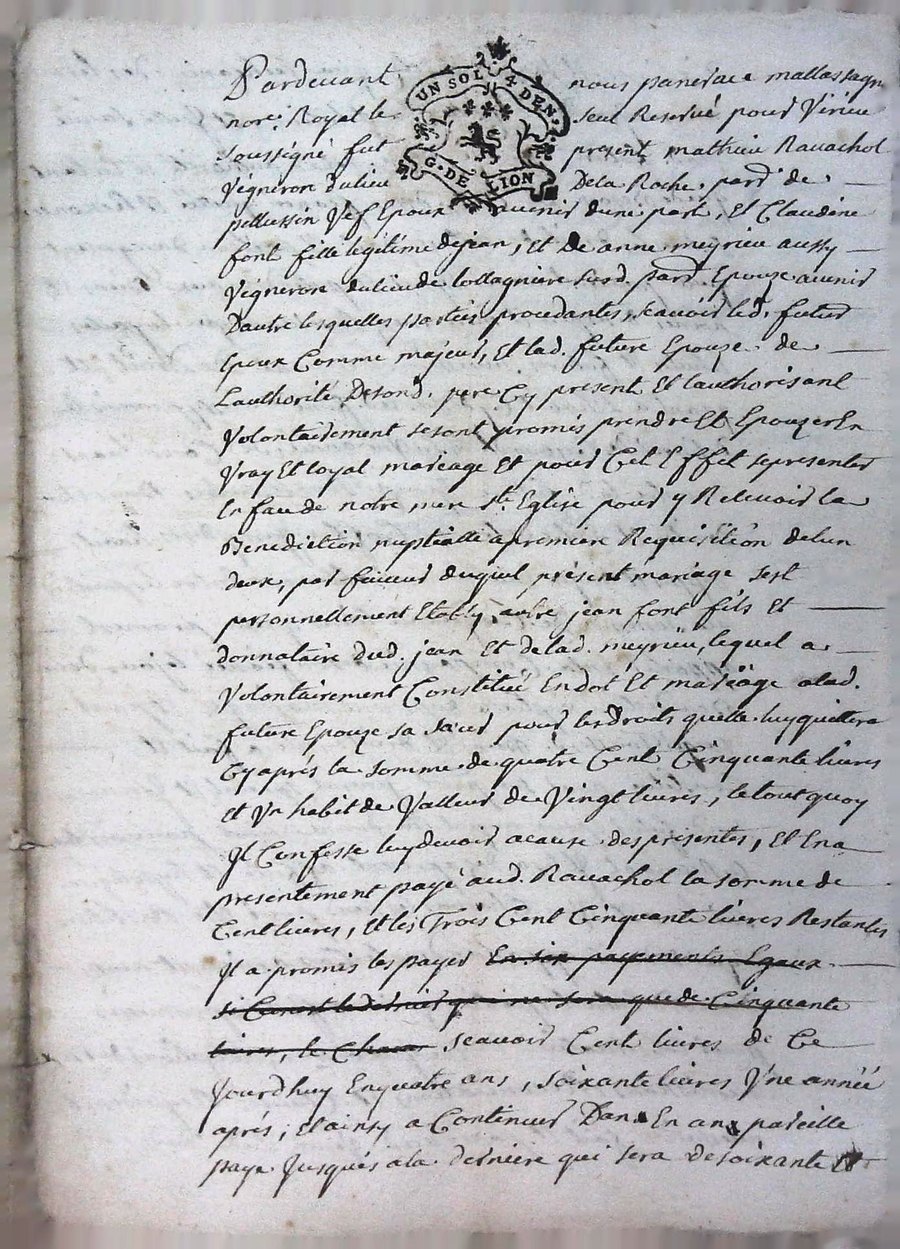 Pardevant nous panerace mallassagn
UN SOL 4 DEN.
G. DE LION
nore. Royal le seul Reservé pour Virieu
soussigné fut present mathieu Ravachol
Vigneron dulieu Dela Roche, parr. de
pellussin Yef Epoux avenir dune part, Et Claudine
font fille legitime dejean, et de anne meyrieu aussy
Vigneron dulieude bollagniere susd. parr. Epouze avenir
Dautre lesquelles parties procedantes, scavoir led. futur
Epoux Comme majeur, Et lad. future Epouze de
Lauthorité Desond. pere Cy present Et lauthorisant
Volontairement sesont promis prendre Et Epouzer En
Vray Et loyal mariage Et pour Cet Effet sepresenter
En face de notre mere Ste. Eglise pour y Recevoir la
Benediction nuptialle apremiere Requisition delun
deux, par faveur duquel présent mariage sest
personnellement Etably autre jean font fils Et
donnataire dud. jean Et delad. meyrieu, lequel a
Volontairement Constitué En dot Et mariage alad.
future Epouze sa sœur pour les droits quelle luy quittera
Cy aprés la somme de quatre Cent Cinquante livres
Et Un habit de Valleur de Vingt livres, letout quoy
Jl Confesse luy devoir acause des présentes, Et En a
presentement payé aud. Ravachol la somme de
Cent livres, Et les Trois Cent Cinquante livres Restantes
Jl a promis les payer En six payements Egaux
si Cenest ledernier qui ne sera que de Cinquante
livres, le Chacun scavoir Cent livres de Ce
Jourdhuy En quatre ans, soixante livres Une année
aprés, Et ainsy a Continuer Dan En an pareille
paye Jusques ala derniere qui sera desoixante